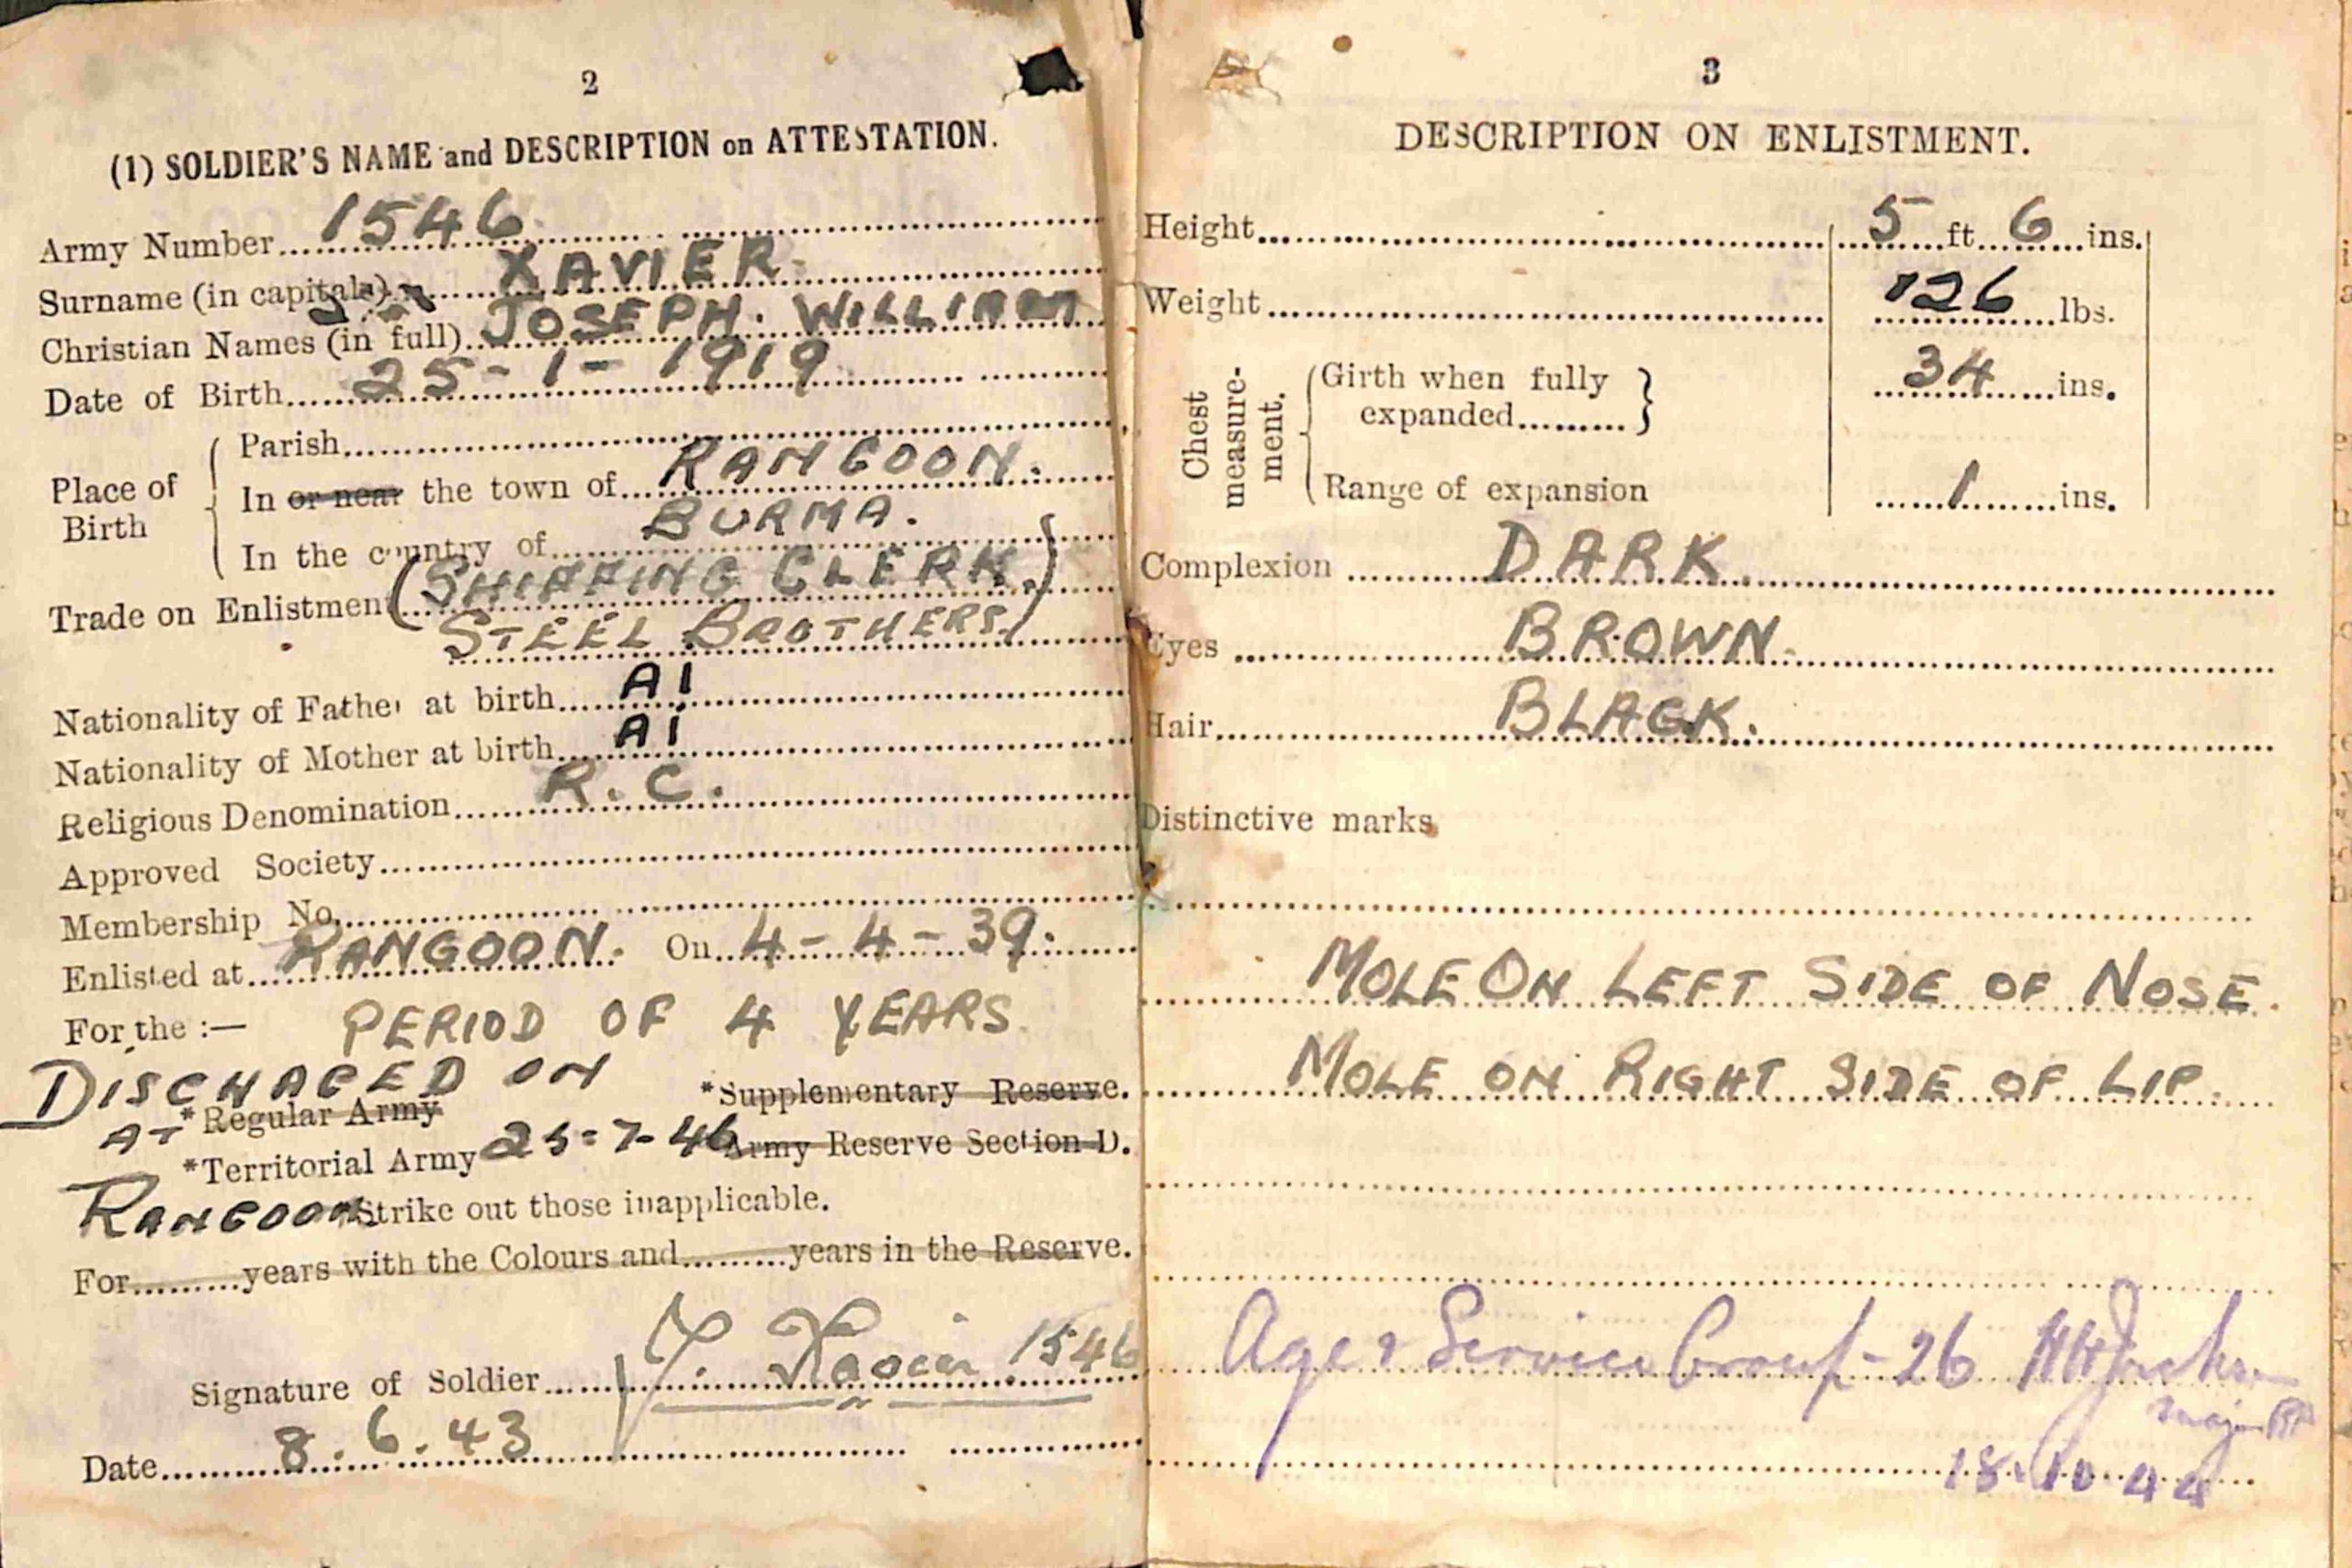 2
(1) SOLDIER'S NAME and DESCRIPTION on ATTESTATION.
Army Number 1546
Surname (in capitals) XAVIER
Christian Names (in full) JOSEPH. WILLIAM
Date of Birth 25-1-1919
Place of Birth
Parish
In or near the town of RANGOON.
In the country of BURMA.
Trade on Enlistment (SHIPPING CLERK.)
STEEL BROTHERS
Nationality of Father at birth AI
Nationality of Mother at birth AI
Religious Denomination R.C.
Approved Society
Membership No.
Enlisted at RANGOON. On 4-4-39.
For the :— PERIOD OF 4 YEARS
DISCHAGED ON
*Regular Army *Supplementary Reserve.
AT
*Territorial Army 25-7-46 Army Reserve Section D.
RANGOON Strike out those inapplicable.
For years with the Colours and years in the Reserve.
Signature of Soldier J. Xavier 1546
Date 8.6.43
3
DESCRIPTION ON ENLISTMENT.
Height 5 ft 6 ins.
Weight 126 lbs.
Chest measure-ment.
Girth when fully expanded 34 ins.
Range of expansion 1 ins.
Complexion DARK.
Eyes BROWN.
Hair BLACK.
Distinctive marks
MOLE ON LEFT SIDE OF NOSE.
MOLE ON RIGHT SIDE OF LIP.
Age & Service Group - 26
Major
18.10.44